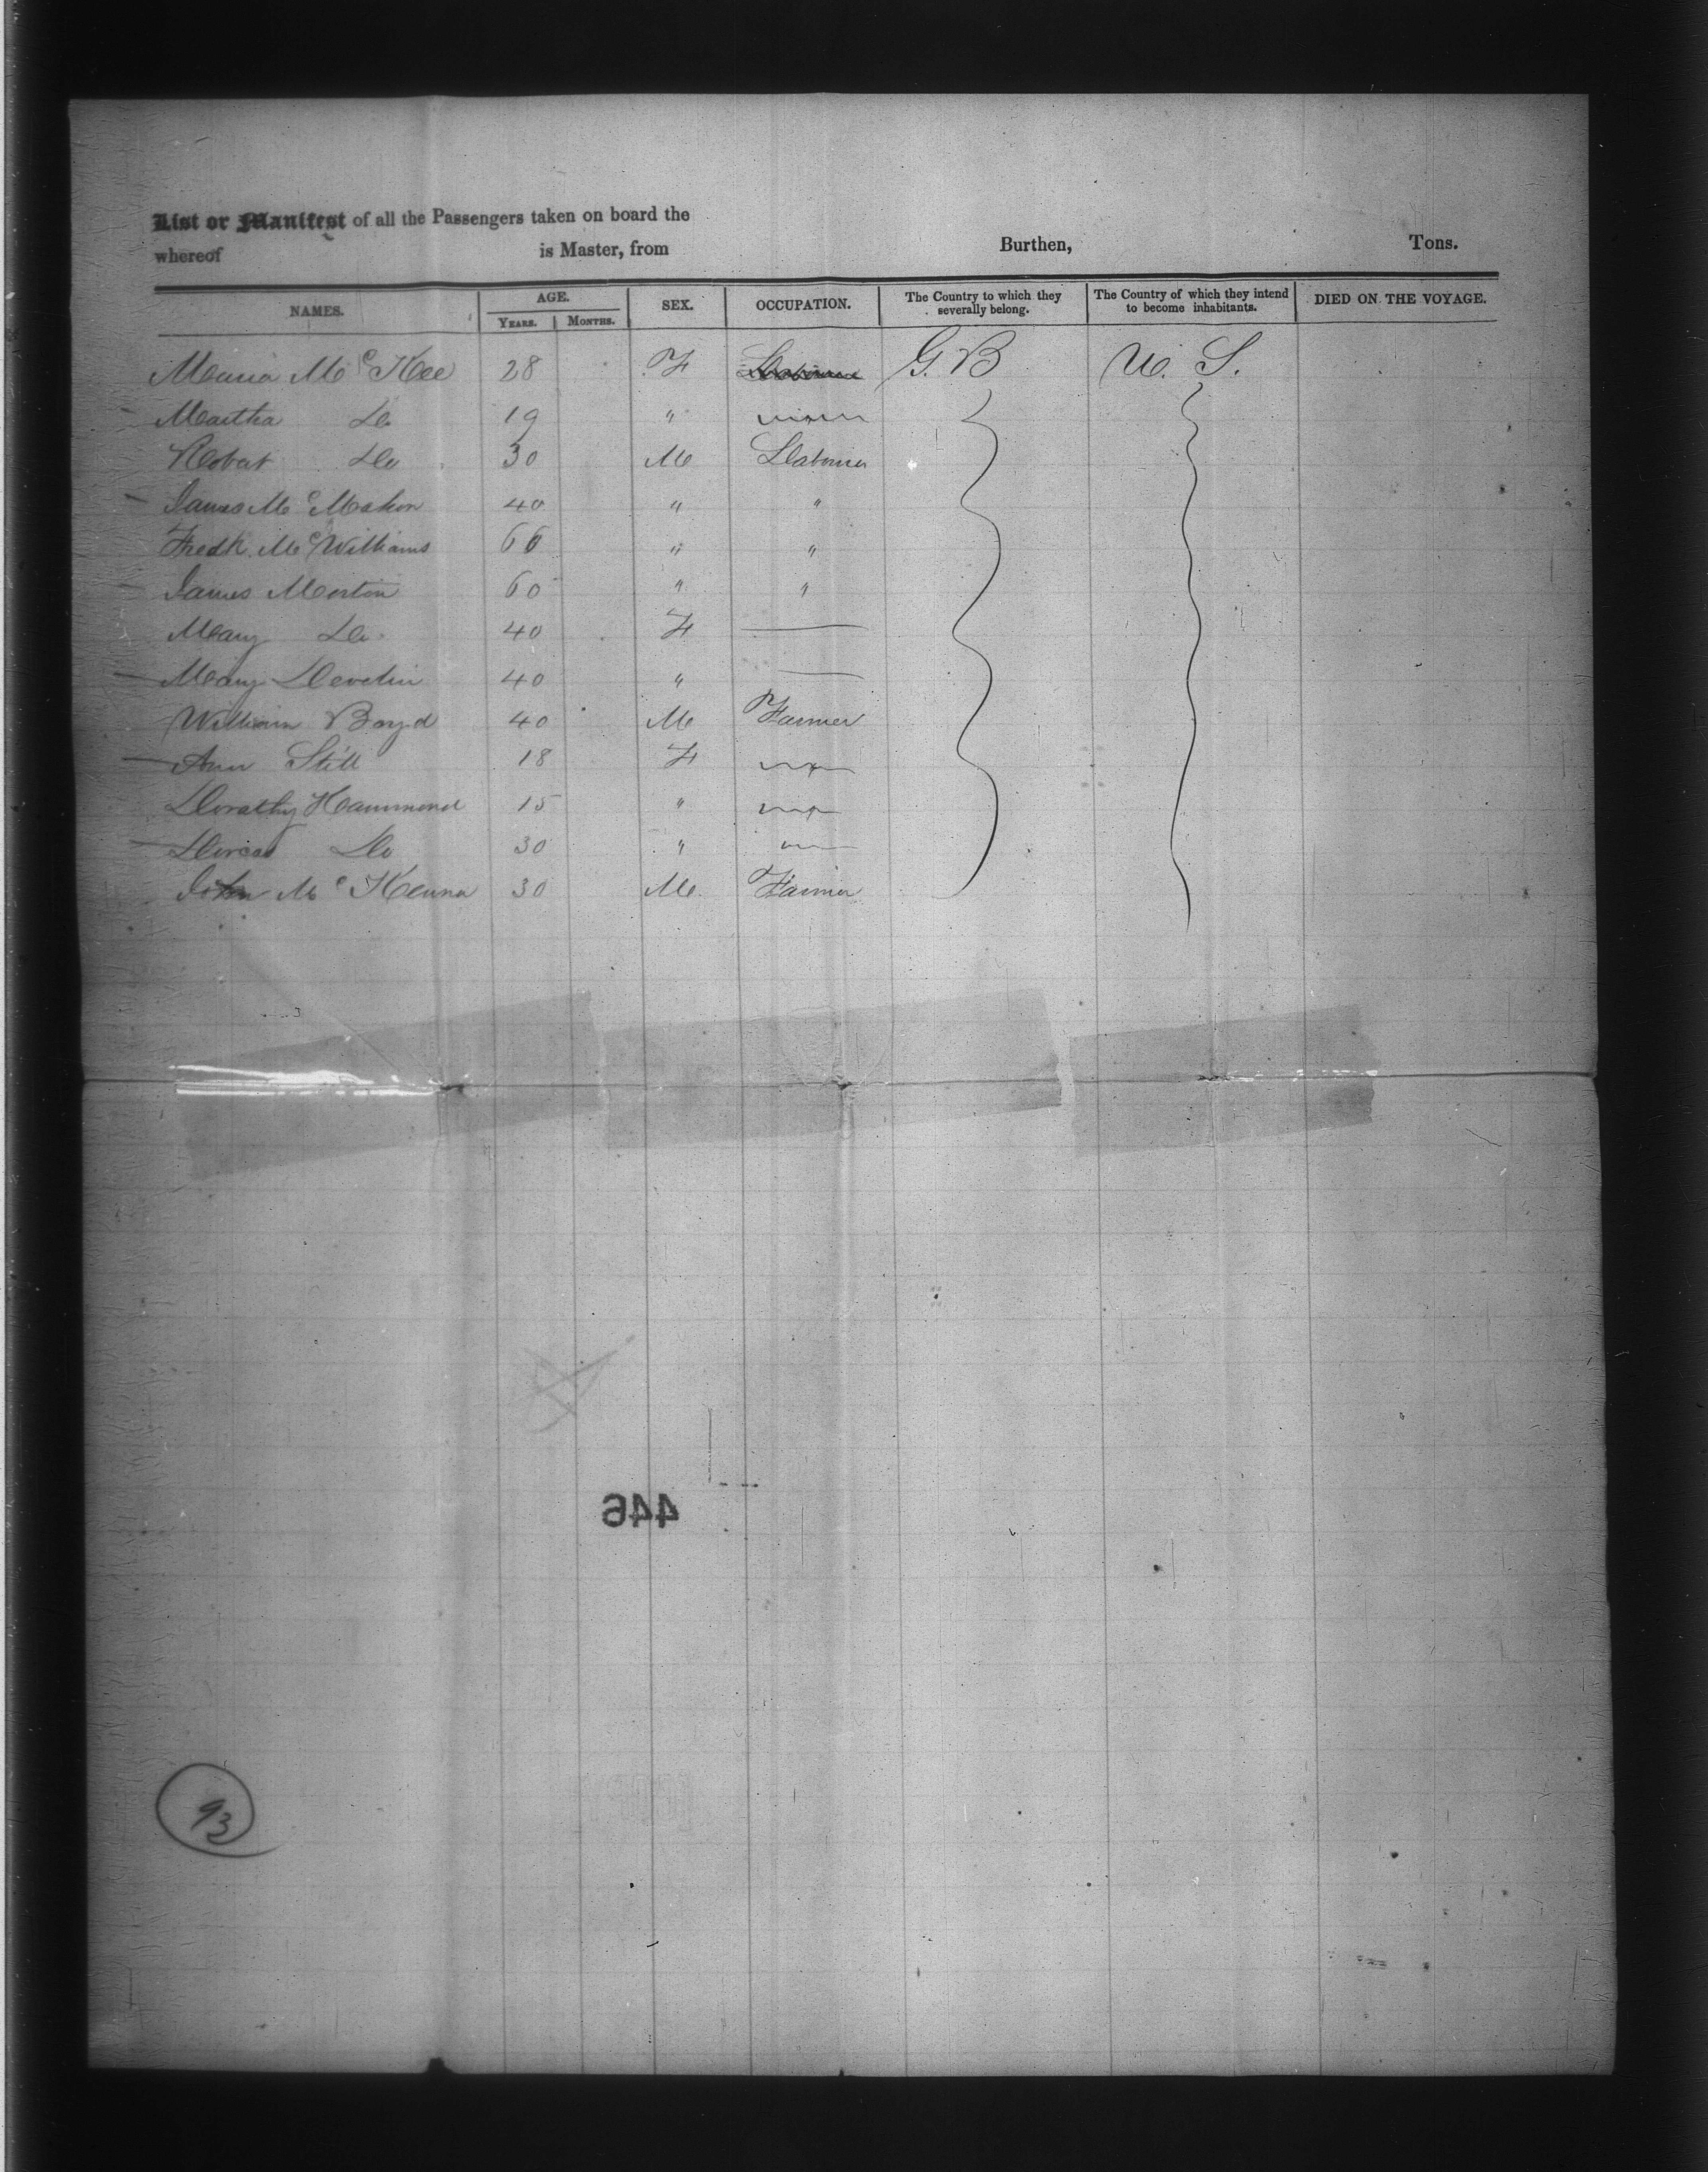 List or Manifest of all the Passengers taken on board the
whereof is Master, from Burthen, Tons.
NAMES. AGE. SEX. OCCUPATION. The Country to which they severally belong. The Country of which they intend to become inhabitants. DIED ON THE VOYAGE.
YEARS. MONTHS.
Maria McKee 28 F G.B U.S.
Martha Do 19 "
Robert Do 30 M Labourer
James McMahon 40 " "
Fredk. McWilliams 66 " "
James Morton 60 " "
Mary Do 40 F
Mary Devlin 40 "
William Boyd 40 M Farmer
Ann Still 18 F
Dorathy Hammond 15 "
Dorcas Do 30 "
John McKenna 30 M. Farmer
446
93